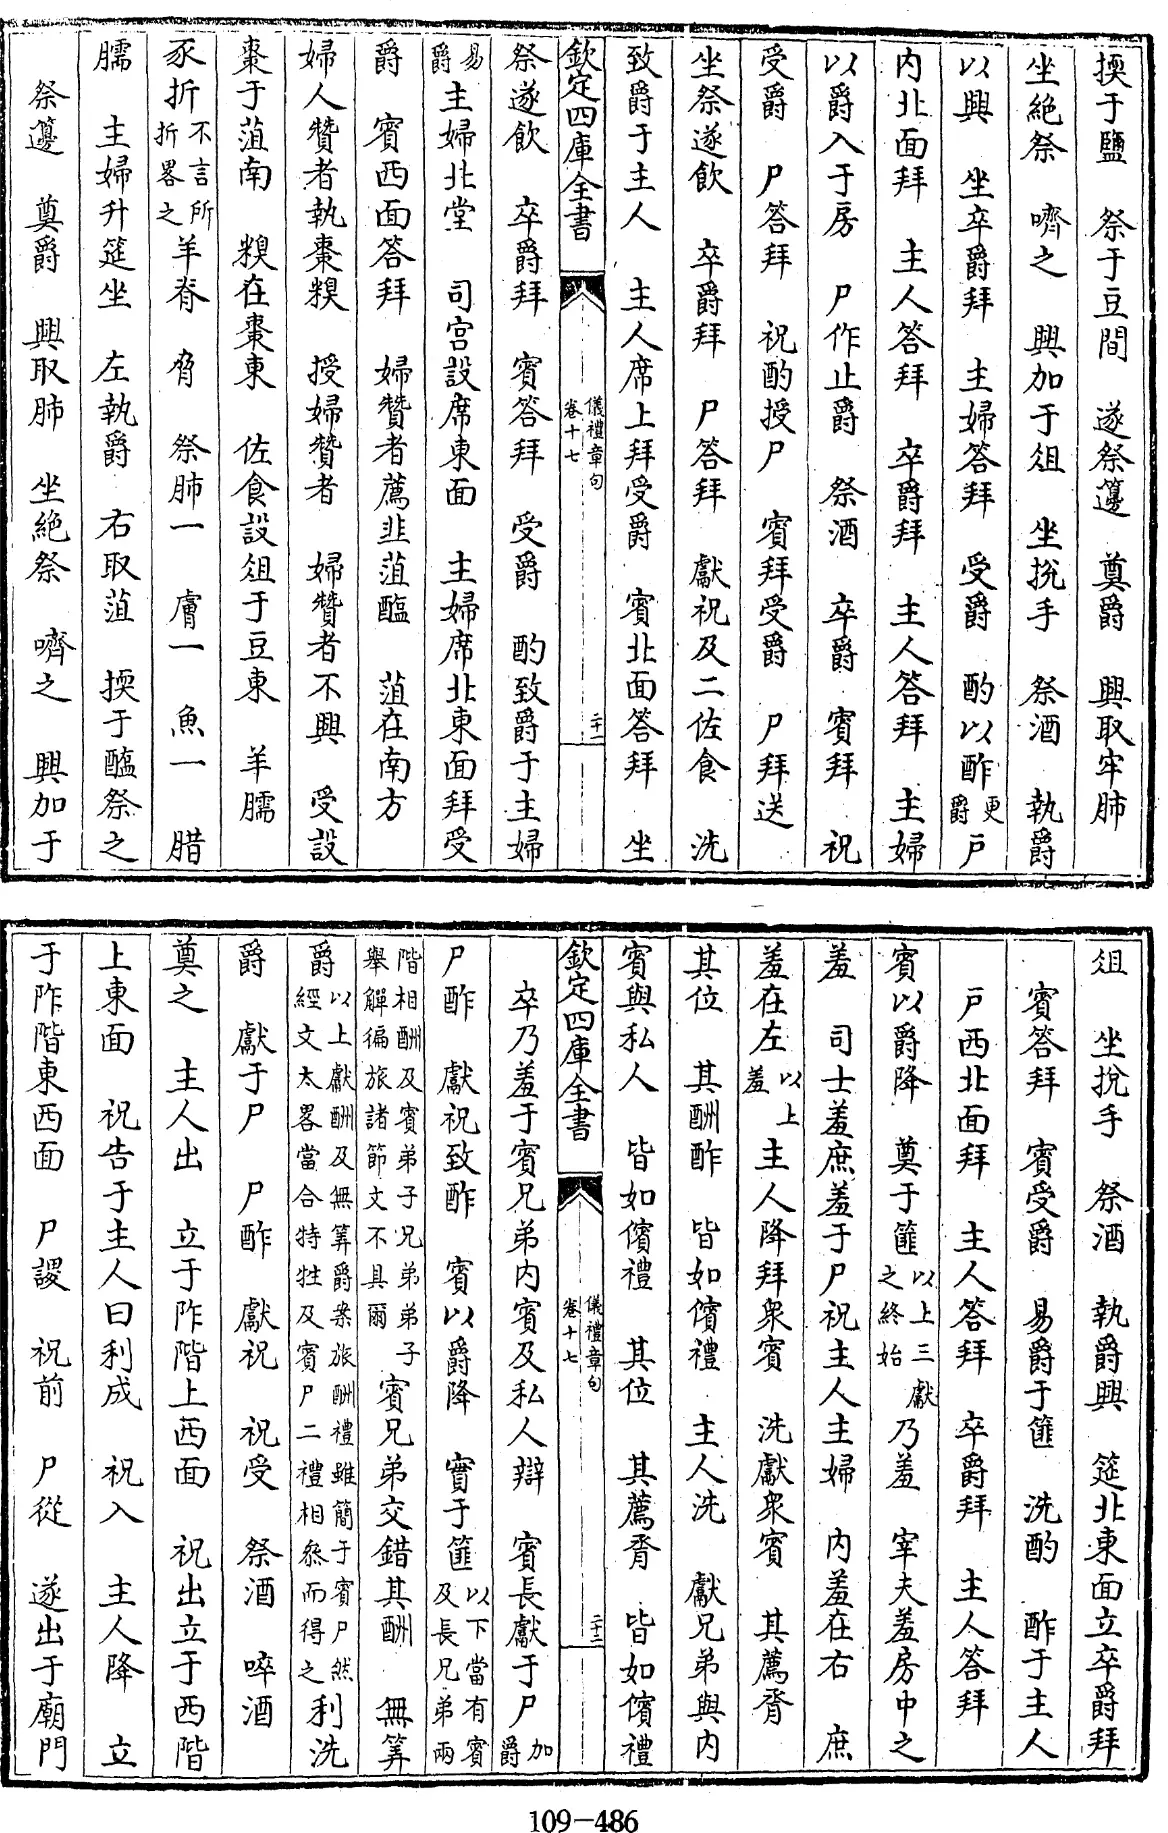 擩于鹽　祭于豆間　遂祭籩　奠爵　興取牢肺
坐絶祭　嚌之　興加于俎　坐挩手　祭酒　執爵
以興　坐卒爵拜　主婦答拜　受爵　酌以酢更爵户
内北面拜　主人答拜　卒爵拜　主人答拜　主婦
以爵入于房　尸作止爵　祭酒　卒爵　賓拜　祝
受爵　尸答拜　祝酌授尸　賓拜受爵　尸拜送
坐祭遂飲　卒爵拜　尸答拜　獻祝及二佐食　洗
致爵于主人　主人席上拜受爵　賓北面答拜　坐
欽定四庫全書　儀禮章句卷十七　二十一
祭遂飲　卒爵拜　賓答拜　受爵　酌致爵于主婦
易爵主婦北堂　司宫設席東面　主婦席北東面拜受
爵　賓西面答拜　婦贊者薦韭菹醢　菹在南方
婦人贊者執棗糗　授婦贊者　婦贊者不興　受設
棗于菹南　糗在棗東　佐食設俎于豆東　羊臑
豕折不言所折畧之羊脊　脅　祭肺一　膚一　魚一　腊
臑　主婦升筵坐　左執爵　右取菹　擩于醢祭之
祭籩　奠爵　興取肺　坐絶祭　嚌之　興加于
俎　坐挩手　祭酒　執爵興　筵北東面立卒爵拜
賓答拜　賓受爵　易爵于篚　洗酌　酢于主人
户西北面拜　主人答拜　卒爵拜　主人答拜
賓以爵降　奠于篚以上三獻之終始乃羞　宰夫羞房中之
羞　司士羞庶羞于尸祝主人主婦　内羞在右　庶
羞在左以上羞主人降拜衆賓　洗獻衆賓　其薦脀
其位　其酬酢　皆如儐禮　主人洗　獻兄弟與内
賓與私人　皆如儐禮　其位　其薦脀　皆如儐禮
欽定四庫全書　儀禮章句卷十七　二十二
卒乃羞于賓兄弟内賓及私人辯　賓長獻于尸加爵
尸酢　獻祝致酢　賓以爵降　實于篚以下當有賓及長兄弟兩
階相酬及賓弟子兄弟弟子舉觶徧旅諸節文不具爾賓兄弟交錯其酬　無筭
爵以上獻酬及無筭爵案旅酬禮雖簡于賓尸然經文太畧當合特牲及賓尸二禮相叅而得之利洗
爵　獻于尸　尸酢　獻祝　祝受　祭酒　啐酒
奠之　主人出　立于阼階上西面　祝出立于西階
上東面　祝告于主人曰利成　祝入　主人降　立
于阼階東西面　尸謖　祝前　尸從　遂出于廟門
109-486